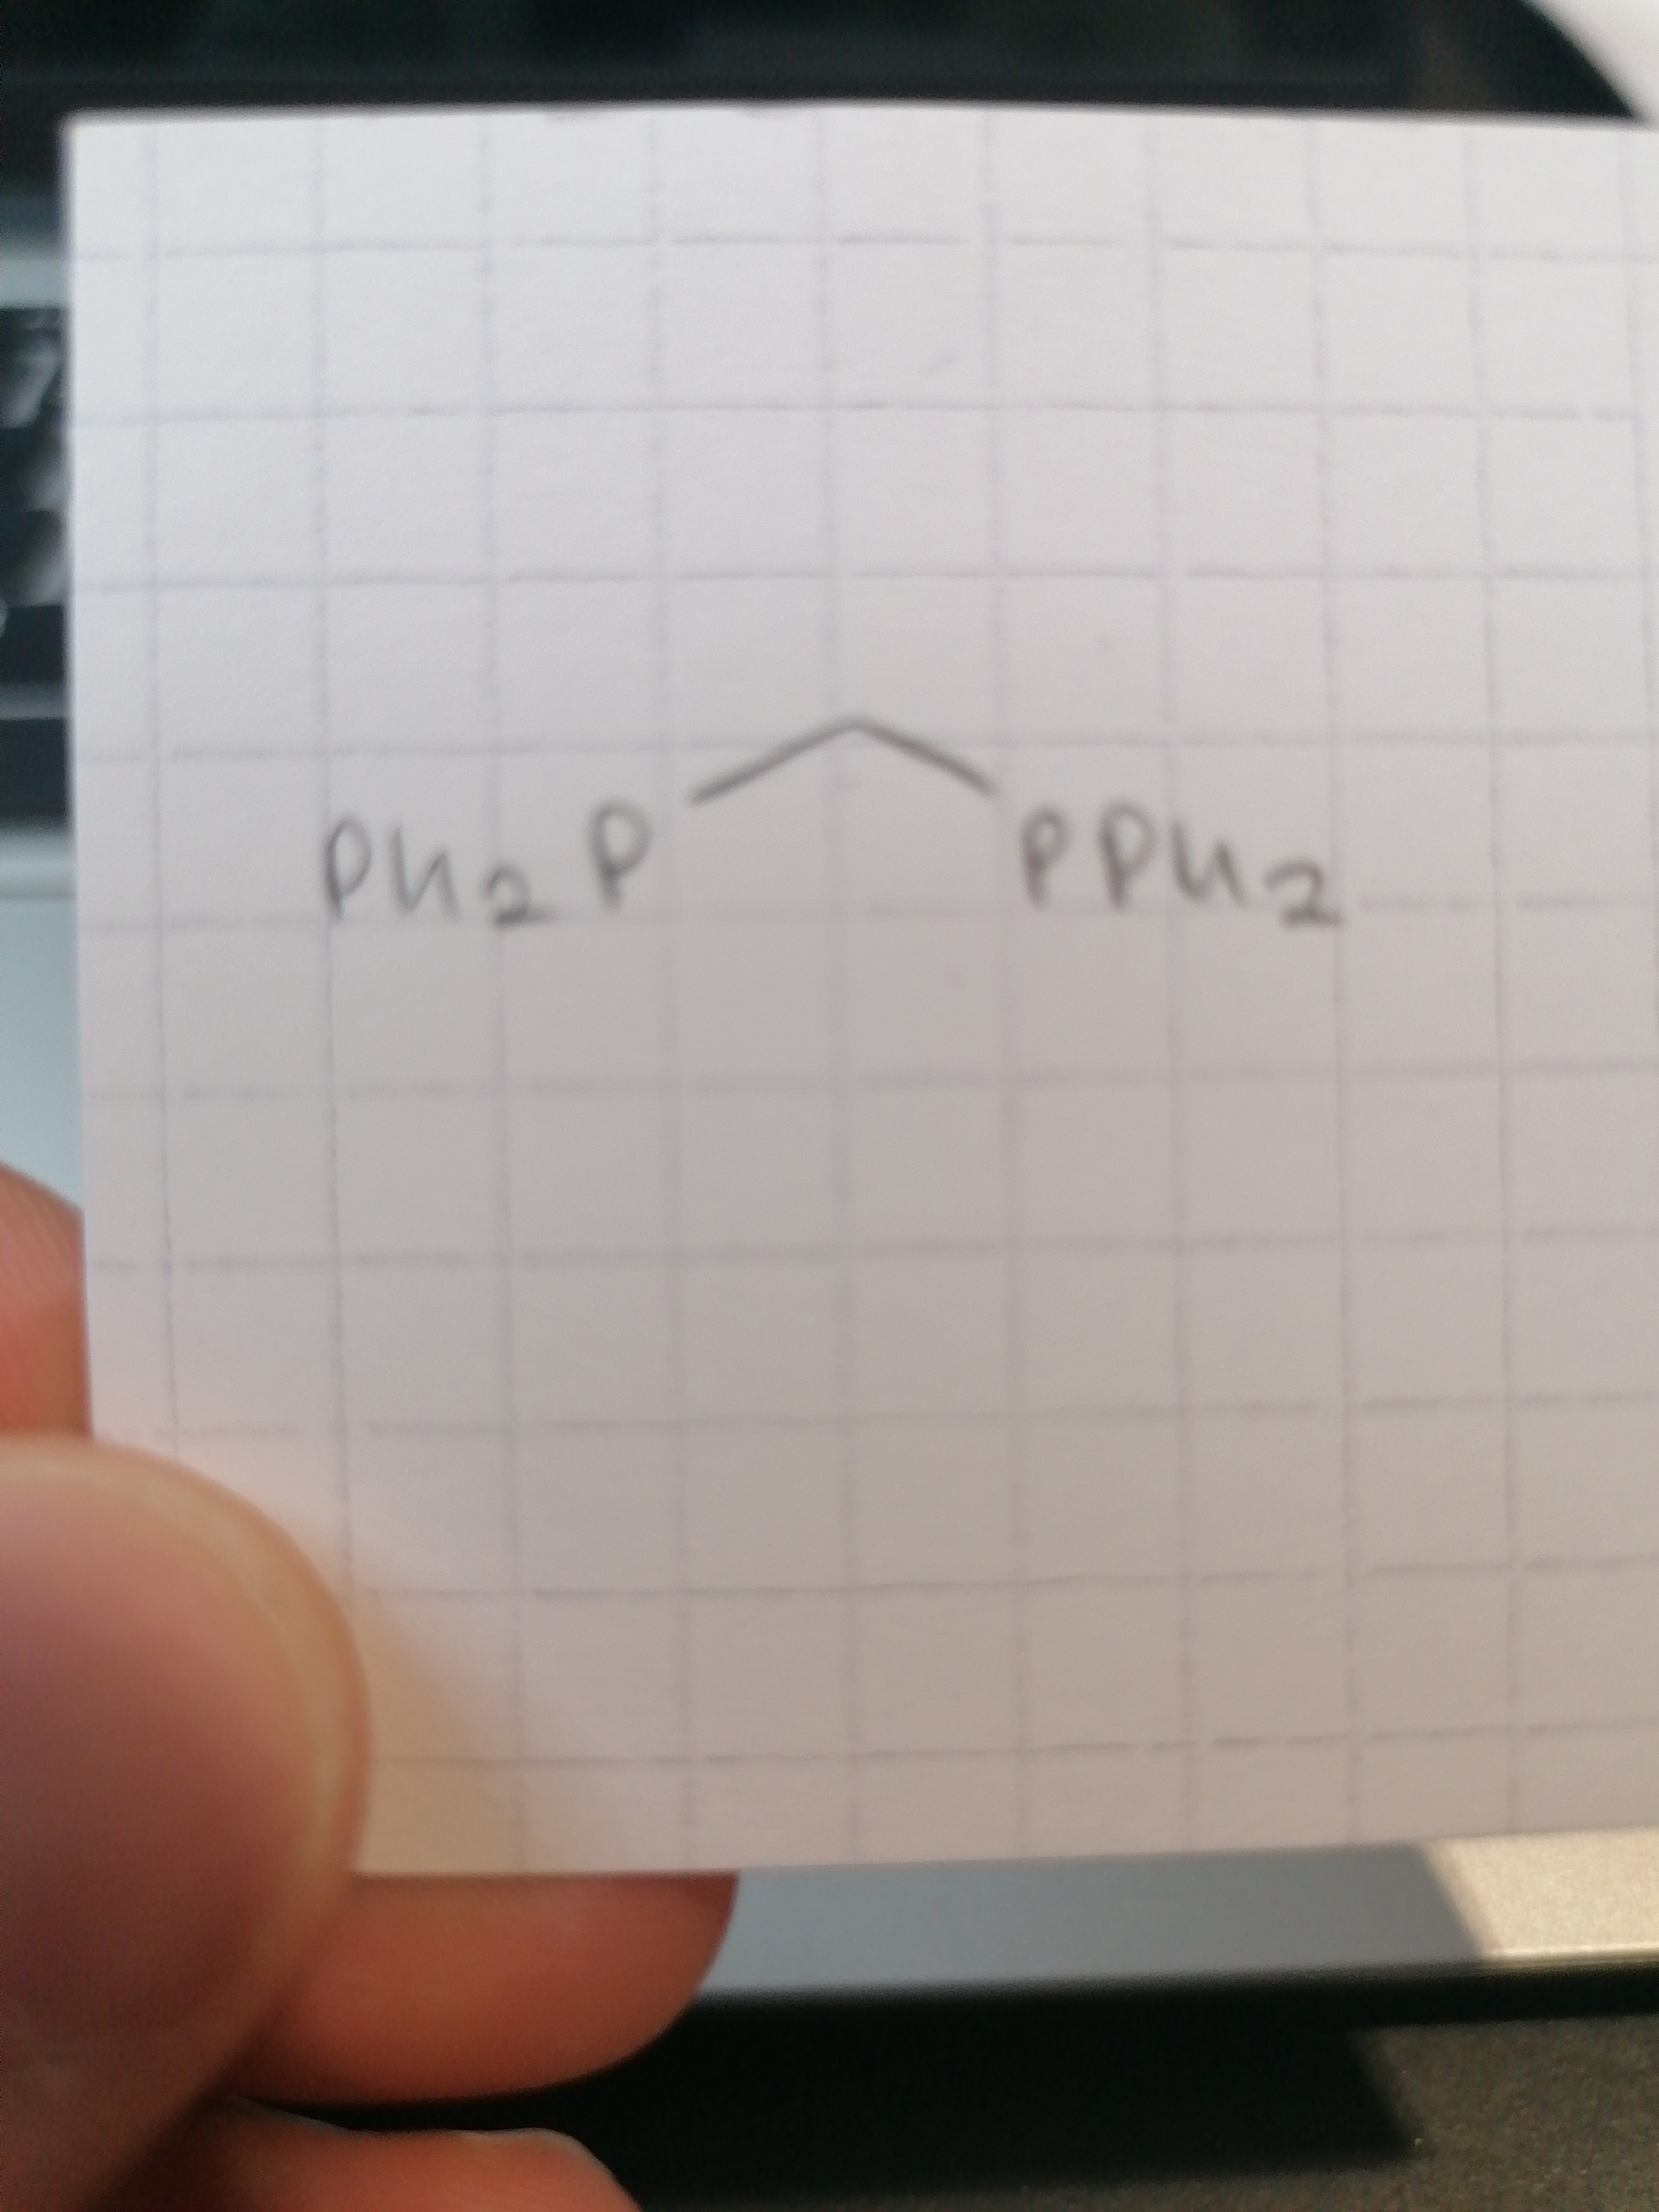 Ph2P PPh2